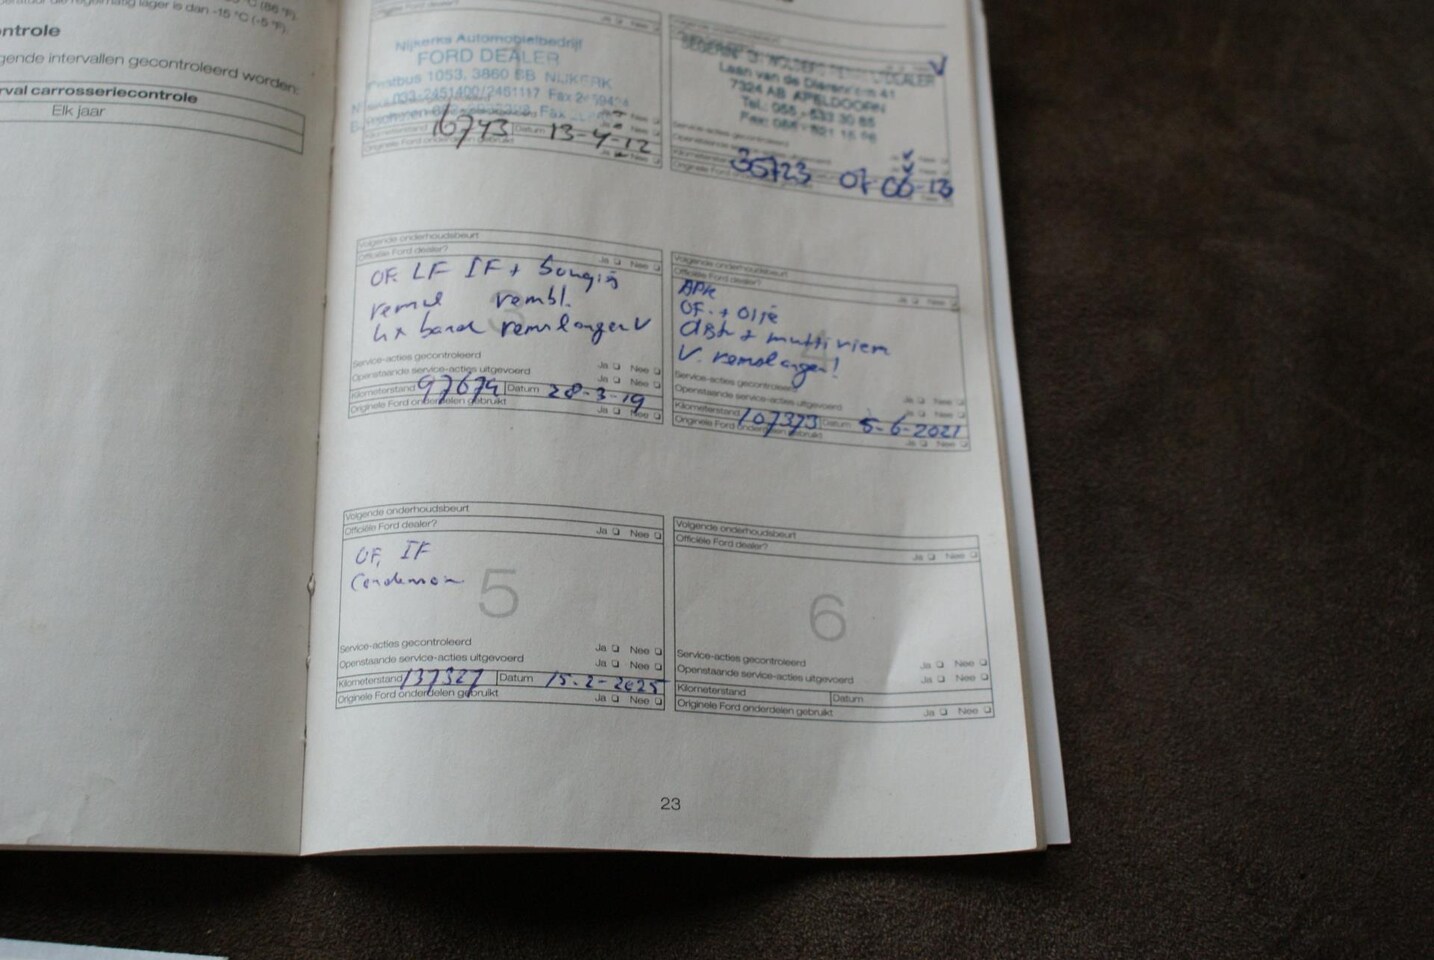 °C (86 °F).
lager is dan -15 °C (-5 °F).
ntrole
gende intervallen gecontroleerd worden:
rval carrosseriecontrole
Elk jaar
Ja Nee
Nijkerks Automobielbedrijf
FORD DEALER
Postbus 1053, 3860 BB NIJKERK
033-2451400/2461117 Fax
Kilometerstand 16743 Datum 13-4-12
Originele Ford onderdelen gebruikt Ja Nee
DEALER
Laan van de Dierenriem 41
7324 AB APELDOORN
Tel.: 055 - 533 30 85
Service-acties gecontroleerd
Openstaande service-acties uitgevoerd Ja Nee
Kilometerstand 36723 07-06-13
Originele Ford onderdelen gebruikt
Volgende onderhoudsbeurt
Officiële Ford dealer? Ja Nee
OF. LF IF + bougis
remol rembl.
4x band remslangen V
3
Service-acties gecontroleerd Ja Nee
Openstaande service-acties uitgevoerd Ja Nee
Kilometerstand 97679 Datum 28-3-19
Originele Ford onderdelen gebruikt Ja Nee
Volgende onderhoudsbeurt
Officiële Ford dealer? Ja Nee
APK
OF. + Olie
dist + multiriem
V. remslangen!
4
Service-acties gecontroleerd Ja Nee
Openstaande service-acties uitgevoerd Ja Nee
Kilometerstand 107373 Datum 5-6-2021
Originele Ford onderdelen gebruikt Ja Nee
Volgende onderhoudsbeurt
Officiële Ford dealer? Ja Nee
OF, IF
5
Service-acties gecontroleerd Ja Nee
Openstaande service-acties uitgevoerd Ja Nee
Kilometerstand 137327 Datum 15-2-2025
Originele Ford onderdelen gebruikt Ja Nee
Volgende onderhoudsbeurt
Officiële Ford dealer? Ja Nee
6
Service-acties gecontroleerd Ja Nee
Openstaande service-acties uitgevoerd Ja Nee
Kilometerstand Datum
Originele Ford onderdelen gebruikt Ja Nee
23